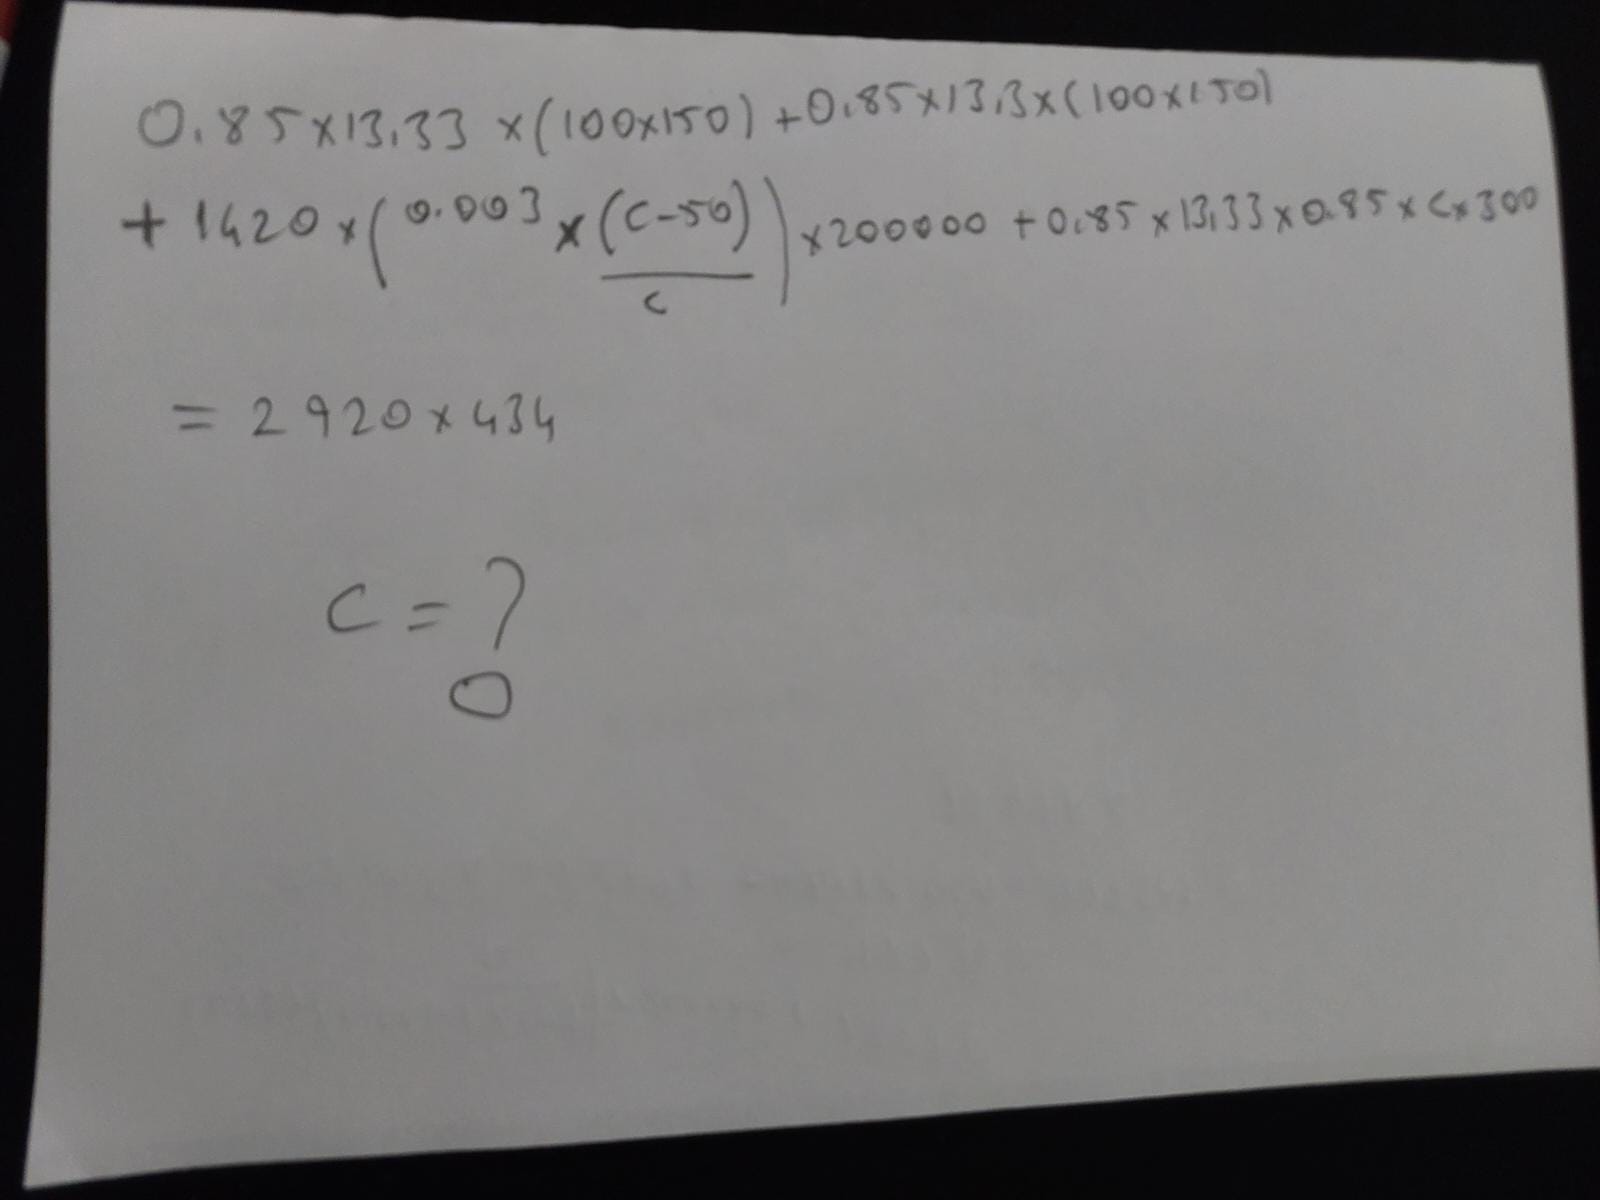 0.85×13.33 ×(100×150) +0.85×13.3×(100×150)
+ 1420 × ( 0.003 × (c-50) ) ×200000 + 0.85 × 13.33 × 0.85 × c× 300
c
= 2920 × 434
c = ?